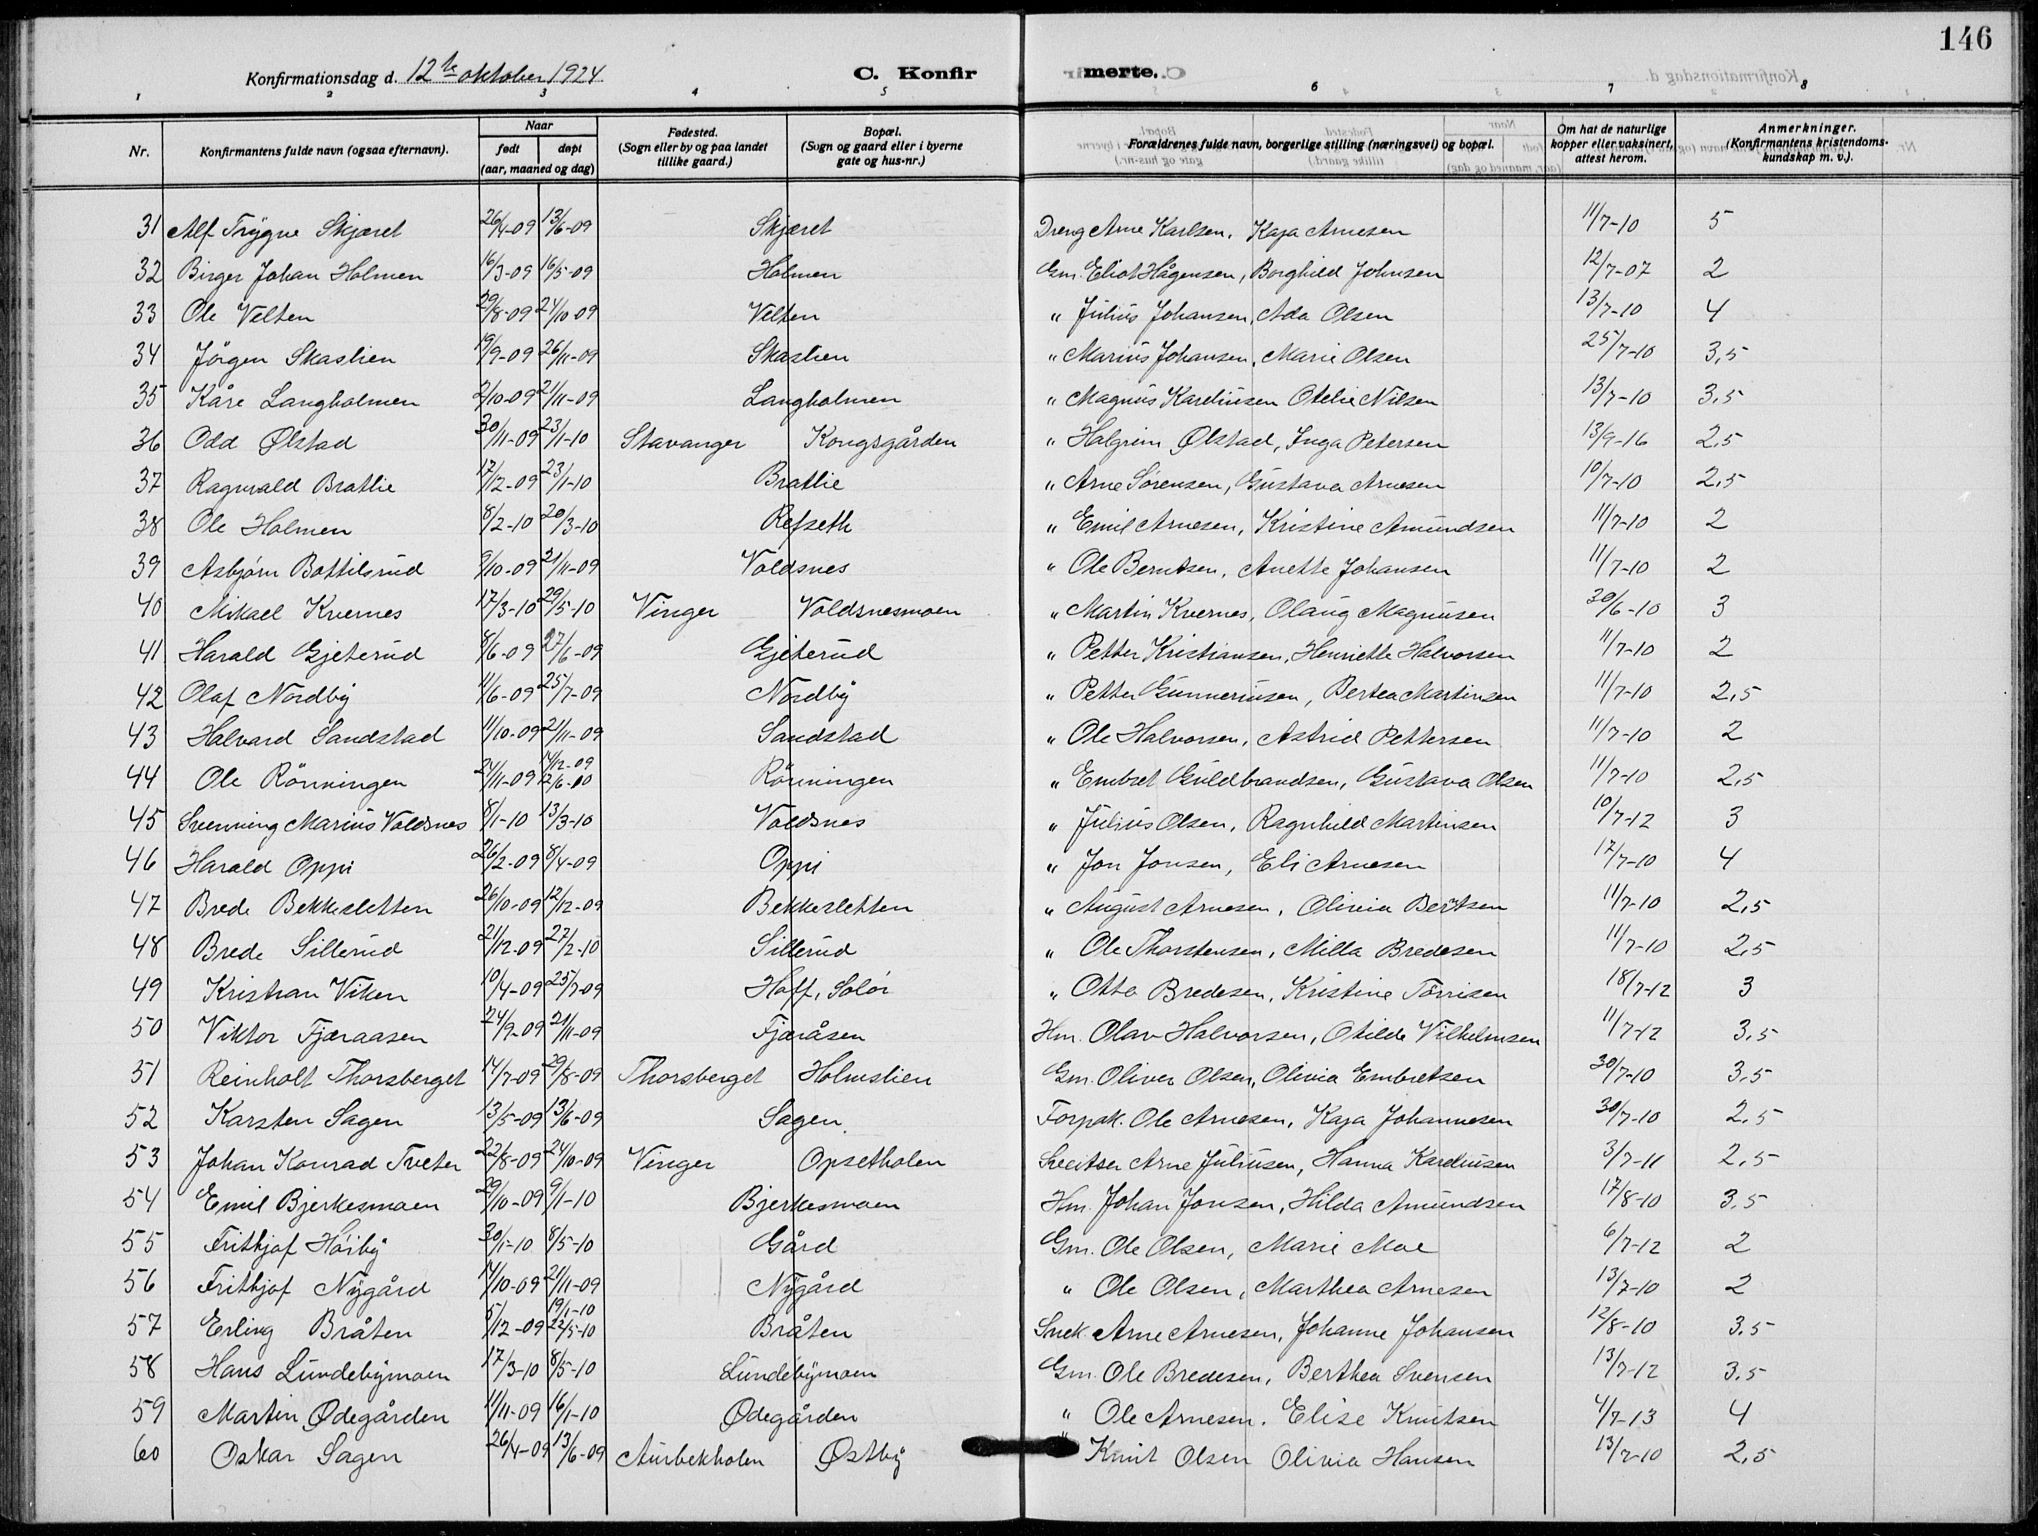 146
Konfirmationsdag d. 12te oktober 1924. C. Konfirmerte.
1 2 3 4 5 6 7 8
Nr. Konfirmantens fulde navn (ogsaa efternavn). Naar født døpt (aar, maaned og dag) Fødested. (Sogn eller by og paa landet tillike gaard.) Bopæl. (Sogn og gaard eller i byerne gate og hus-nr.) Forældrenes fulde navn, borgerlige stilling (næringsvei) og bopæl. Om hat de naturlige kopper eller vaksinert, attest herom. Anmerkninger. (Konfirmantens kristendoms-kundskap m. v.).
31 Alf Trygve Skjæret 26/4-09 13/6-09 Skjæret Dreng Arne Karlsen, Kaja Arnesen 11/7-10 5
32 Birger Johan Holmen 16/3-09 16/5-09 Holmen Gm. Eliot Hågensen, Borghild Johnsen 12/7-07 2
33 Ole Velten 29/8-09 24/10-09 Velten " Julius Johansen, Ada Olsen 13/7-10 4
34 Jörgen Skaslien 19/9-09 26/11-09 Skaslien " Marius Johansen, Marie Olsen 25/7-10 3,5
35 Kåre Langholmen 2/10-09 21/11-09 Langholmen " Magnus Kareliusen Otelie Nilsen 13/7-10 3,5
36 Odd Ølstad 30/11-09 23/1-10 Stavanger Kongsgården " Halgrim Ølstad, Inga Petersen 13/9-16 2,5
37 Ragnvald Bratlie 17/12-09 23/1-10 Bratlie " Arne Sørensen, Gustava Arnesen 10/7-10 2,5
38 Ole Holmen 8/2-10 20/3-10 Refseth " Emil Arnesen, Kristine Amundsen 11/7-10 2
39 Asbjørn Bottilsrud 9/10-09 21/11-09 Voldsnes " Ole Berntsen, Anette Johansen 11/7-10 2
40 Mikael Kvernes 17/3-10 29/5-10 Vinger Voldsnesmoen " Martin Kvernes, Olaug Magnusen 30/6-10 3
41 Harald Gjeterud 8/6-09 27/6-09 Gjeterud " Petter Kristiansen, Henriette Halvorsen 11/7-10 2
42 Olaf Nordby 11/6-09 25/7-09 Nordby " Petter Gunneriusen, Bertea Martinsen 11/7-10 2,5
43 Halvard Sandstad 11/10-09 21/11-09 Sandstad " Ole Halvorsen, Astrid Pettersen 11/7-10 2
44 Ole Rönningen 24/11-09 14/12-09 12/6-00 Rönningen " Embret Guldbrandsen, Gustava Olsen 11/7-10 2,5
45 Svenning Marius Voldsnes 8/1-10 13/3-10 Voldsnes " Julius Olsen, Ragnhild Martinsen 10/7-12 3
46 Harald Oppi 26/2-09 8/4-09 Oppi " Jon Jonsen, Eli Arnesen 17/7-10 4
47 Brede Bekkesletten 26/10-09 12/12-09 Bekkesletten " August Arnesen, Olivia Bertsen 11/7-10 2,5
48 Brede Sillerud 21/12-09 27/2-10 Sillerud " Ole Thorstensen, Milla Bredesen 11/7-10 2,5
49 Kristian Viken 10/4-09 25/7-09 Hoff, Solör " Otto Bredesen, Kristine Törrisen 18/7-12 3
50 Viktor Fjæraasen 24/9-09 21/11-09 Fjæråsen Hm. Olav Halvorsen, Otilde Vilhelmsen 11/7-12 3,5
51 Reinholt Thorsberget 14/7-09 29/8-09 Thorsberget Holmslien Gm. Oliver Olsen, Olivia Embretsen 30/7-10 3,5
52 Karsten Sagen 13/5-09 13/6-09 Sagen Forpak. Ole Arnesen, Kaja Johannesen 30/7-10 2,5
53 Johan Konrad Tveter 22/8-09 24/10-09 Vinger Opsetholen Sveitser Arne Juliusen, Hanna Kareliusen 3/7-11 2,5
54 Emil Bjerkesmoen 29/10-09 9/1-10 Bjerkesmoen Hm. Johan Jonsen, Hilda Amundsen 17/8-10 3,5
55 Frithjof Høiby 30/1-10 8/5-10 Gård Gm. Ole Olsen, Marie Moe 6/7-12 2
56 Frithjof Nygård 14/10-09 21/11-09 Nygård " Ole Olsen, Marthea Arnesen 13/7-10 2
57 Erling Bråten 5/12-09 19/1-10 22/5-10 Bråten Snek. Arne Arnesen, Johanne Johansen 12/8-10 3,5
58 Hans Lundebymoen 17/3-10 8/5-10 Lundebymoen Gm. Ole Bredesen, Berthea Svensen 13/7-12 3,5
59 Martin Ødegården 11/11-09 16/1-10 Ødegården " Ole Arnesen, Elise Knutsen 4/7-13 4
60 Oskar Sagen 26/4-09 13/6-09 Aurbekholen Østby " Knut Olsen Olivia Hansen 13/7-10 2,5